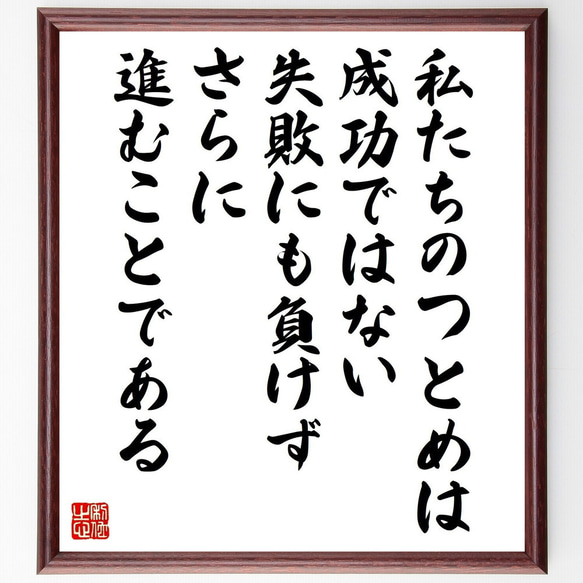 私たちのつとめは
成功ではない
失敗にも負けず
さらに
進むことである